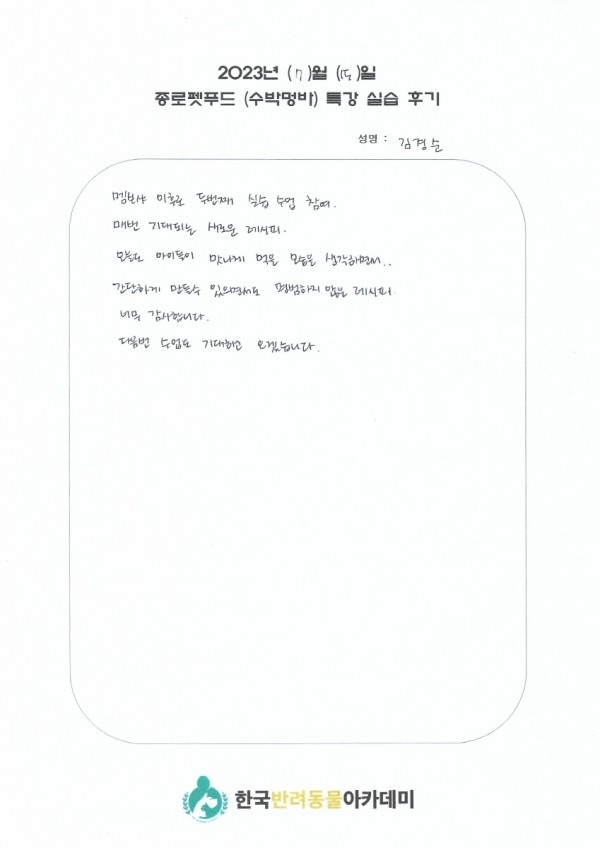 2023년 (7)월 (15)일
종로펫푸드 (수박멍바) 특강 실습 후기
성명 : 김경순
멤브샤 이후로 두번째 실습 수업 참여.
매번 기대되는 새로운 레시피.
오늘도 아이들이 맛나게 먹을 모습을 생각하면서..
간단하게 만들수 있으면서도 평범하지 않은 레시피.
너무 감사합니다.
다음번 수업도 기대하고 오겠습니다.
한국반려동물아카데미